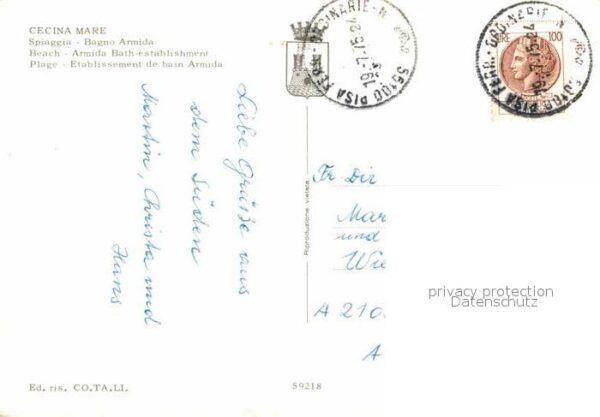 CECINA MARE
Spiaggia - Bagno Armida
Beach - Armida Bath-establishment
Plage - Etablissement de bain Armida
Liebe Grüße aus
dem Süden
Martin, Christa und
Hans
Riproduzione vietata
56100 PISA FERR. ORDINARIE
100
56100 PISA FERR. ORDINARIE
Fr. Dir
Mar
und
Wie
A 210
A
privacy protection
Datenschutz
Ed. ris. CO.TA.LI.
59218